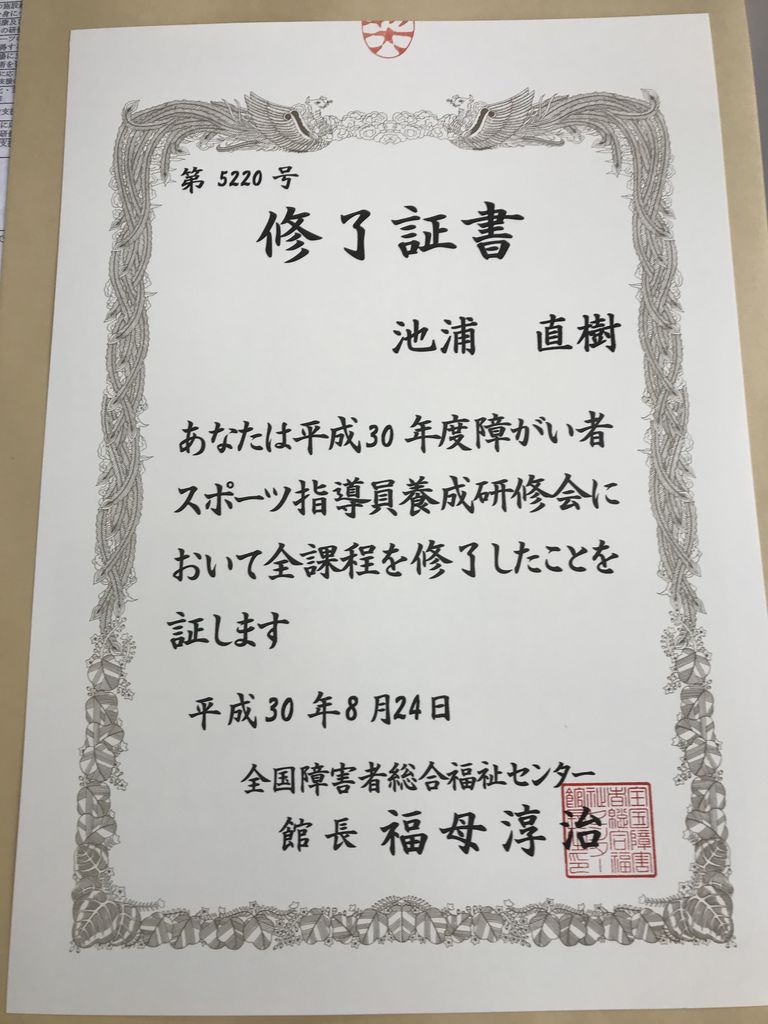 第 5220 号
修了証書
池浦 直樹
あなたは平成30年度障がい者
スポーツ指導員養成研修会に
おいて全課程を修了したことを
証します
平成30年8月24日
全国障害者総合福祉センター
館長 福母淳治